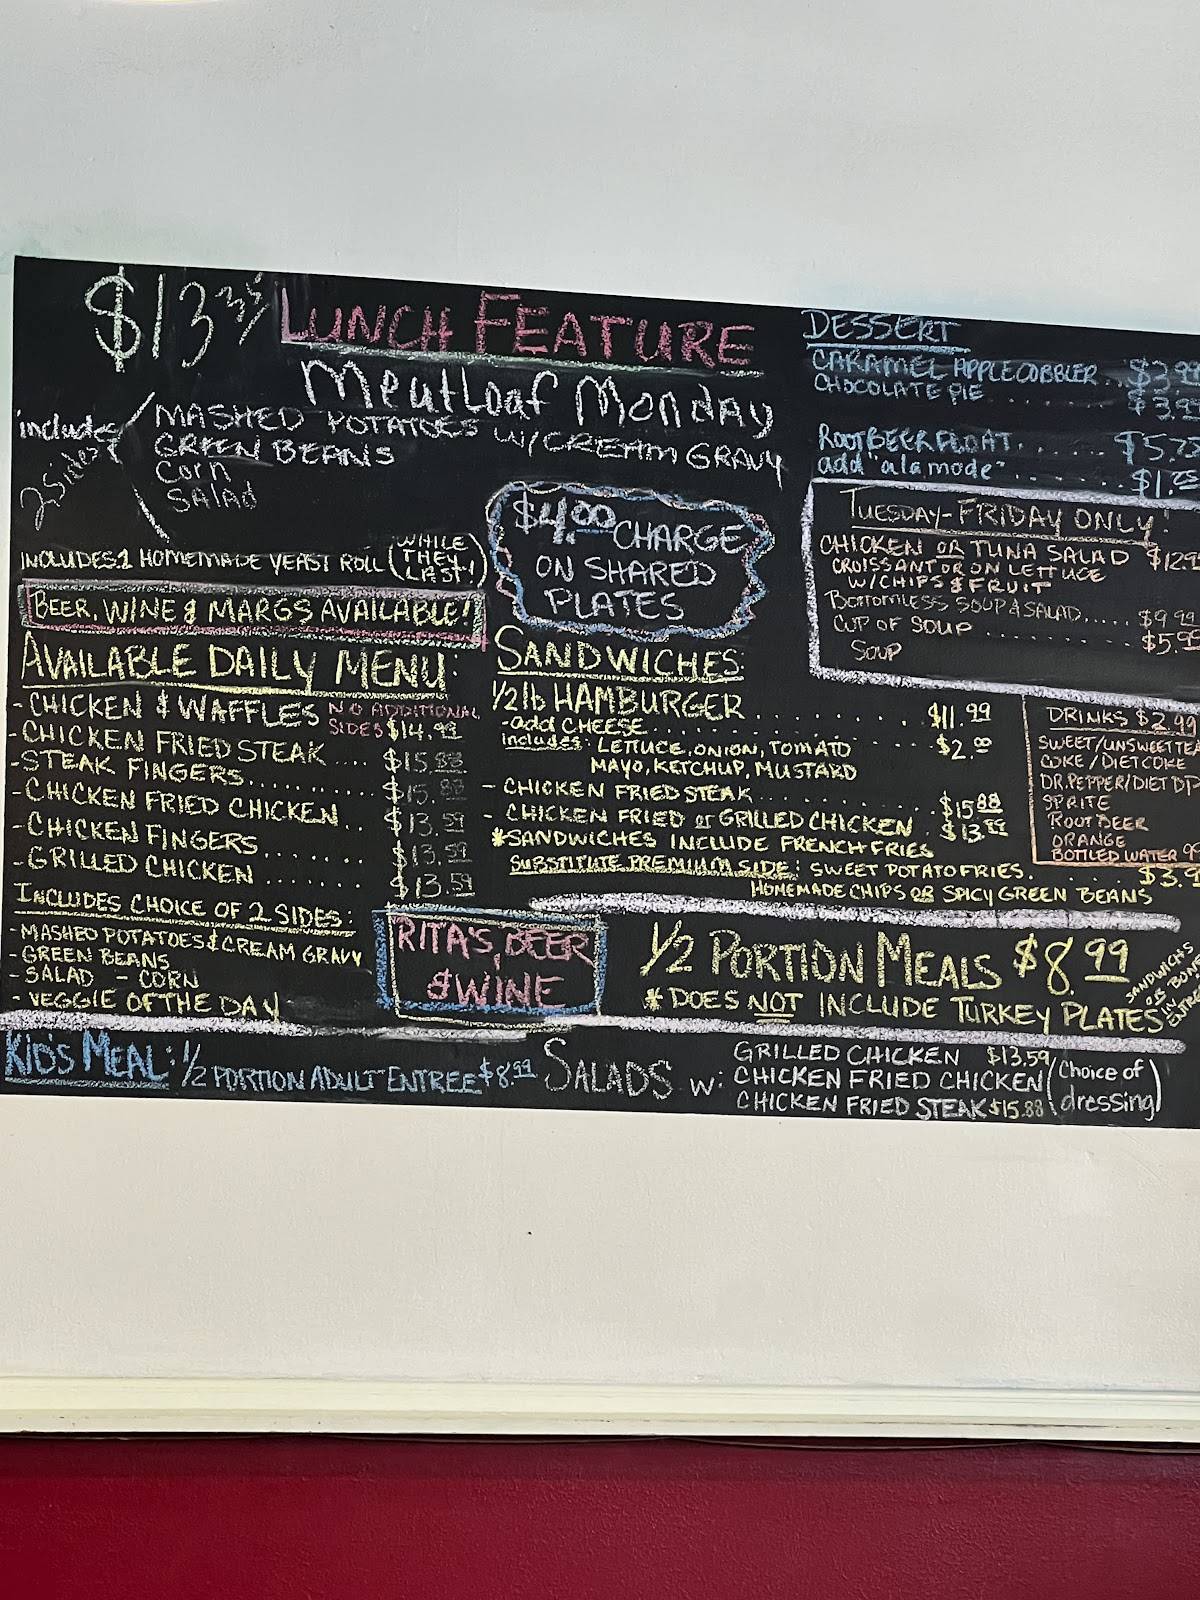 $13.35 LUNCH FEATURE
Meatloaf Monday
includes
2 Sides
MASHED POTATOES W/CREAM GRAVY
GREEN BEANS
Corn
Salad
INCLUDES 1 HOMEMADE YEAST ROLL (WHILE THEY LAST!)
BEER, WINE & MARGS AVAILABLE!
$4.00 CHARGE
ON SHARED
PLATES
AVAILABLE DAILY MENU:
-CHICKEN & WAFFLES NO ADDITIONAL SIDES $14.99
-CHICKEN FRIED STEAK.... $15.88
-STEAK FINGERS............ $15.88
-CHICKEN FRIED CHICKEN.. $13.59
-CHICKEN FINGERS ........ $13.59
-GRILLED CHICKEN ........ $13.59
INCLUDES CHOICE OF 2 SIDES:
-MASHED POTATOES & CREAM GRAVY
-GREEN BEANS
-SALAD - CORN
-VEGGIE OF THE DAY
RITA'S, BEER
& WINE
KID'S MEAL: 1/2 PORTION ADULT ENTREE $8.99
SANDWICHES:
1/2 lb HAMBURGER .......... $11.99
-add CHEESE .......... $2.00
includes: LETTUCE, ONION, TOMATO
MAYO, KETCHUP, MUSTARD
- CHICKEN FRIED STEAK .......... $15.88
- CHICKEN FRIED or GRILLED CHICKEN . $13.59
*SANDWICHES INCLUDE FRENCH FRIES
SUBSTITUTE PREMIUM SIDE: SWEET POTATO FRIES. ..... $3.9
HOMEMADE CHIPS OR SPICY GREEN BEANS
1/2 PORTION MEALS $8.99
* DOES NOT INCLUDE TURKEY PLATES
SANDWICHS
OR
IN
SALADS W:
GRILLED CHICKEN $13.59
CHICKEN FRIED CHICKEN
CHICKEN FRIED STEAK $15.88
(Choice of
dressing)
DESSERT
CARAMEL APPLE COBBLER... $3.99
CHOCOLATE PIE ........ $3.99
ROOTBEER FLOAT....... $5.
add "ala mode" ........ $1.
TUESDAY-FRIDAY ONLY!
CHICKEN OR TUNA SALAD $12.9
CROISSANT OR ON LETTUCE
W/CHIPS & FRUIT
BOTTOMLESS SOUP & SALAD..... $9.99
CUP OF SOUP .......... $5.9
SOUP
DRINKS $2.99
SWEET/UNSWEET TEA
COKE / DIET COKE
DR.PEPPER/DIET DP
SPRITE
ROOT BEER
ORANGE
BOTTLED WATER 99